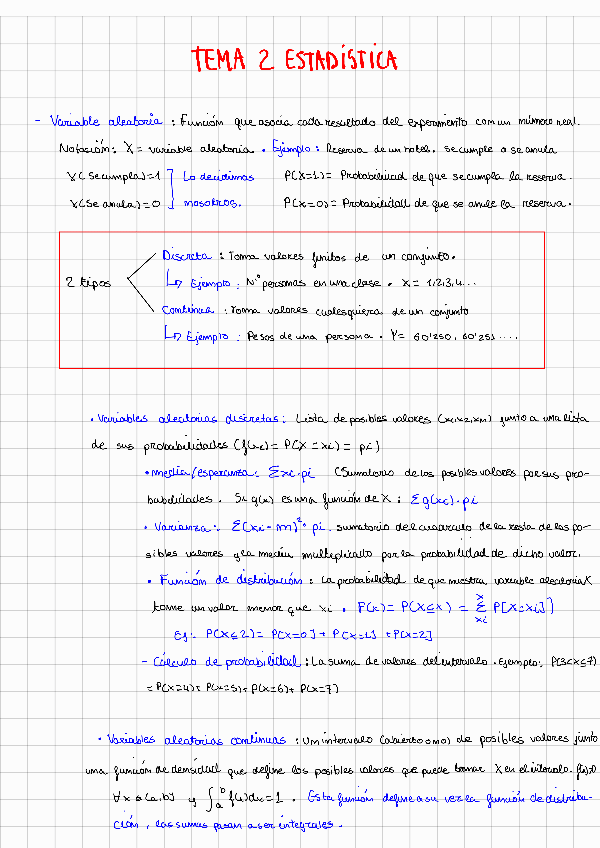 TEMA 2 ESTADÍSTICA
- Variable aleatoria : Función que asocia cada resultado del experimento con un número real.
Notación: X = variable aleatoria . Ejemplo : Reserva de un hotel. se cumple o se anula
X(Se cumpla)=1 Lo decidimos P(X=1)= Probabilidad de que se cumpla la reserva.
X(Se anula)=0 nosotros. P(X=0)= Probabilidad de que se anule la reserva.
Discreta : Toma valores finitos de un conjunto.
2 tipos ↳ Ejemplo : Nº personas en una clase . X = 1,2,3,4...
Continua : Toma valores cualesquiera de un conjunto
↳ Ejemplo : Pesos de una persona . Y= 60'250, 60'251 ....
• Variables aleatorias discretas : Lista de posibles valores (x1,x2,xn) junto a una lista
de sus probabilidades (f(xi)= P(X=xi)= pi)
• media/esperanza : Σxi·pi (Sumatorio de los posibles valores por sus pro-
babilidades . Si g(x) es una función de X : Σg(xi)·pi
• Varianza : Σ(xi - m)²· pi . sumatorio del cuadrado de la resta de los po-
sibles valores y la media multiplicado por la probabilidad de dicho valor.
• Función de distribución : La probabilidad de que nuestra variable aleatoria X
tome un valor menor que xi . F(x)= P(X≤x) = Σ P[X=xi]
Ej : P(X≤2)= P[X=0] + P[X=1] + P[X=2]
- Cálculo de probabilidad : La suma de valores del intervalo . Ejemplo : P(3<X≤7)
= P(X=4)+ P(X=5)+ P(X=6)+ P(X=7)
• Variables aleatorias continuas : Un intervalo (abierto o no) de posibles valores junto
una función de densidad que define los posibles valores que puede tomar X en el intervalo. f(x)≥0
∀x ∈ (a,b) y ∫ₐᵇ f(x)dx=1 . Esta función define a su vez la función de distribu-
ción , las sumas pasan a ser integrales.